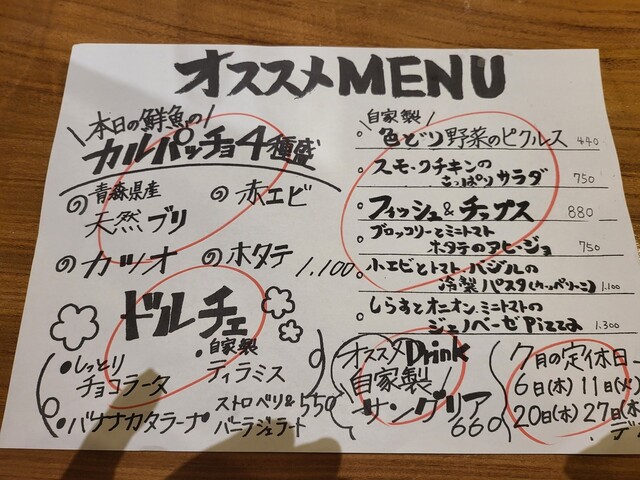 オススメMENU
本日の鮮魚の
カルパッチョ4種盛
青森県産
天然ブリ
赤エビ
カツオ
ホタテ
1.100
ドルチェ
しっとり
チョコラータ
自家製
ティラミス
バナナカタラーナ
ストロベリー&
バニラジェラート
550
自家製
色どり野菜のピクルス 440
スモークチキンの
さっぱりサラダ 750
フィッシュ&チップス 880
ブロッコリーとミニトマト
ホタテのアヒージョ 750
小エビとトマト、バジルの
冷製パスタ(カッペリーニ) 1.100
しらすとオニオン、ミニトマトの
ジェノベーゼPizza 1.300
オススメDrink
自家製
サングリア
660
7月の定休日
6日(木) 11日(火)
20日(木) 27日(木